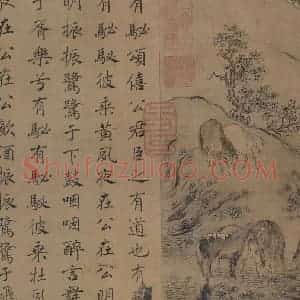 有駜頌僖公君臣之有道也有
有駜駜彼乘黃夙夜在公在公明
明振振鷺鷺于下鼓咽咽醉言舞
于胥樂兮有駜有駜駜彼乘牡
在公在公飲酒振振鷺鷺于飛
Shufaziliao.com